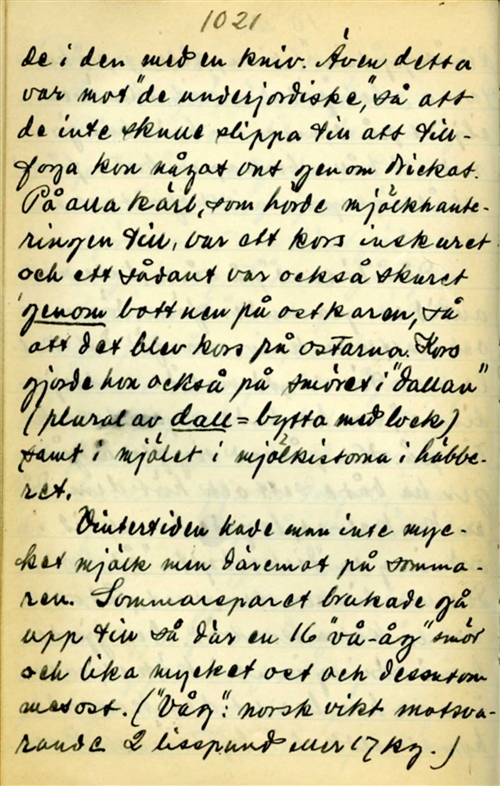 1021
de i den med en kniv. Även detta
var mot "de underjordiske", så att
de inte skulle slippa till att till-
foga kon något ont genom drickat.
På alla kärl, som hörde mjölkhante-
ringen till, var ett kors inskuret
och ett sådant var också skuret
genom bottnen på ostkaren, så
att det blev kors på ostarna. Kors
gjorde hon också på smöret i "dallan"
(plural av dall = bytta med lock)
samt i mjölet i mjölkistorna i häbbe-
ret.
Vintertiden hade man inte myc-
ket mjölk men däremot på somma-
ren. Sommarsparet brukade gå
upp till så där en 16 "vå-åg" smör
och lika mycket ost och dessutom
mesost. ("Våg": norsk vikt motsva-
rande 2 lisspund eller 17 kg.)